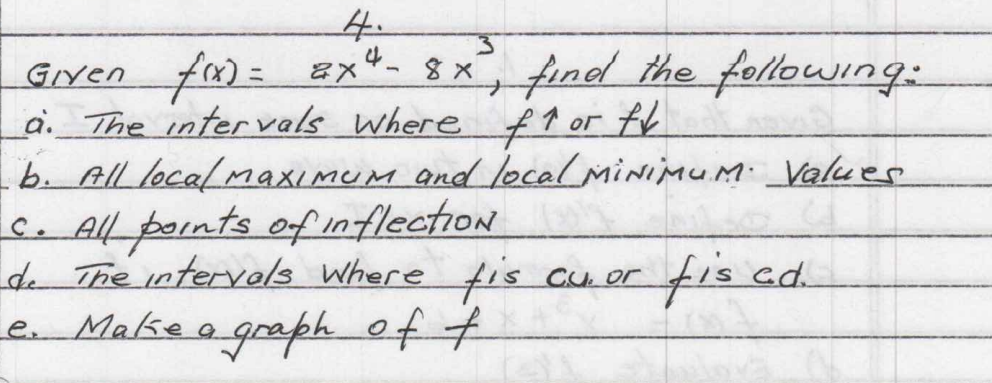 4.
Given f(x) = 2x⁴ - 8x³, find the following:
a. The intervals where f↑ or f↓
b. All local maximum and local minimum. values
c. All points of inflection
d. The intervals where f is cu. or f is cd.
e. Make a graph of f